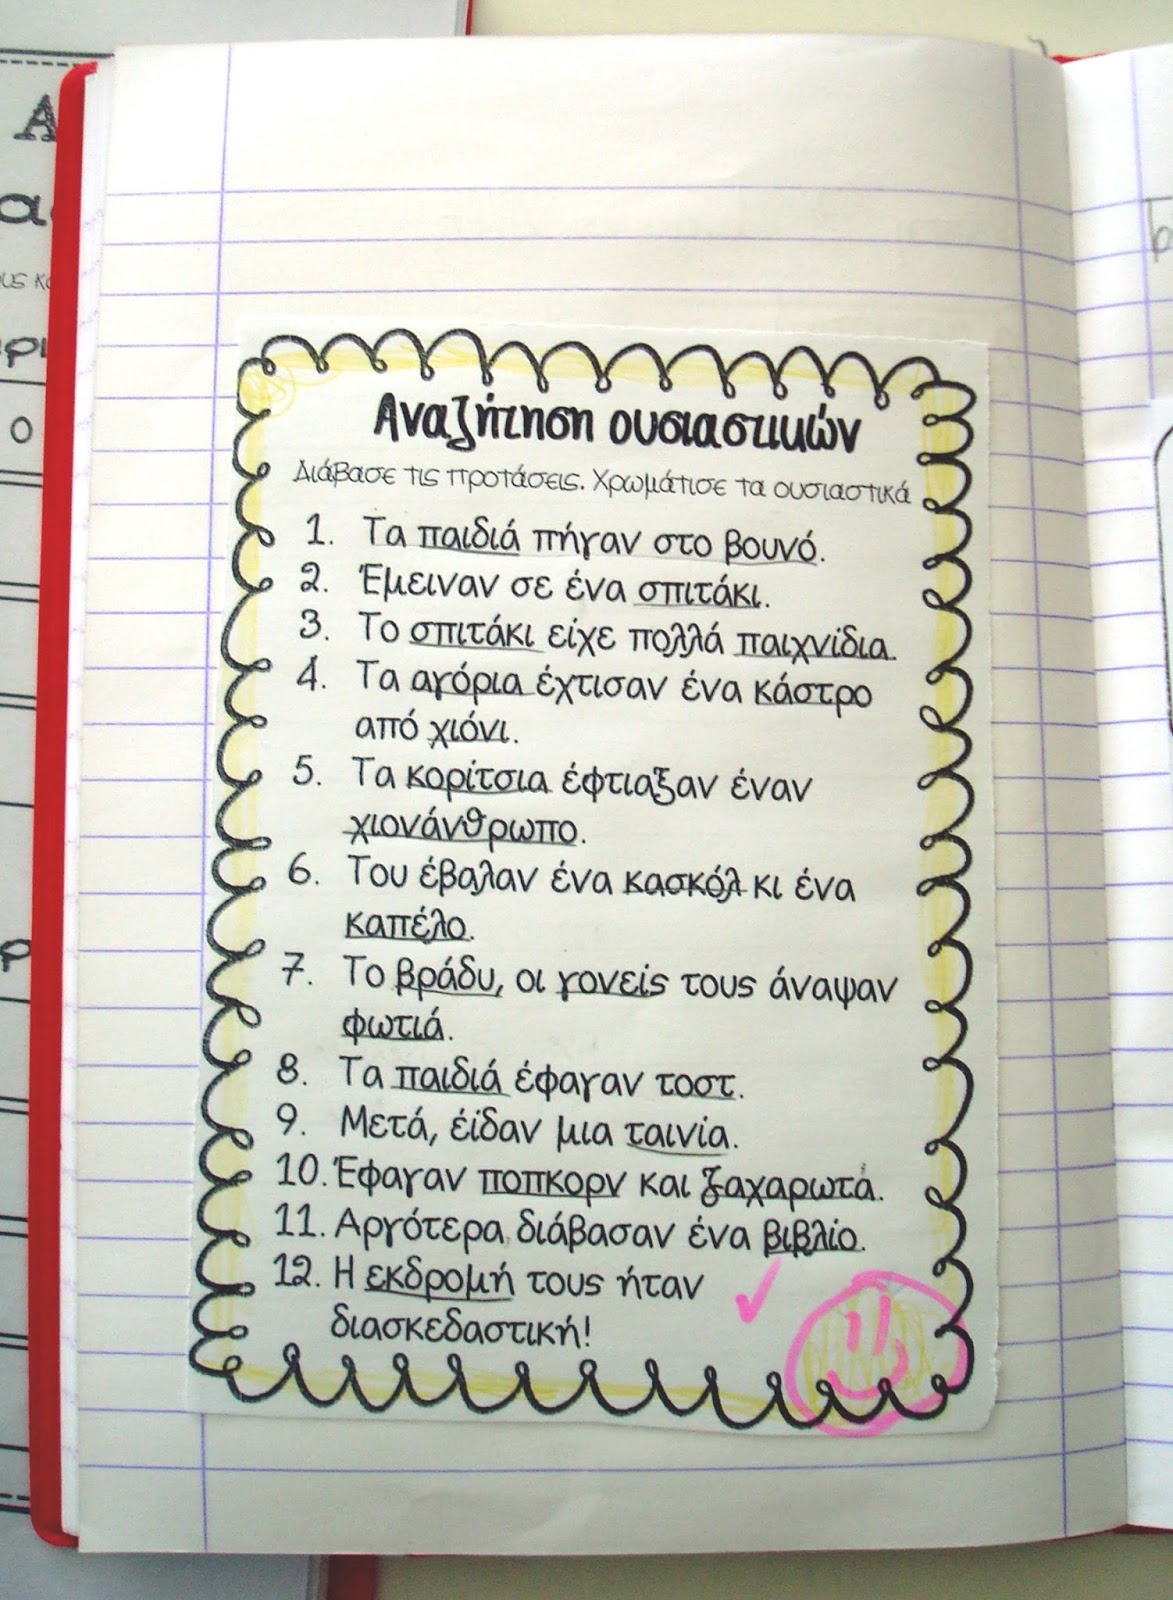 Αναζήτηση ουσιαστικών
Διάβασε τις προτάσεις. Χρωμάτισε τα ουσιαστικά
1. Τα παιδιά πήγαν στο βουνό.
2. Έμειναν σε ένα σπιτάκι.
3. Το σπιτάκι είχε πολλά παιχνίδια.
4. Τα αγόρια έχτισαν ένα κάστρο
από χιόνι.
5. Τα κορίτσια έφτιαξαν έναν
χιονάνθρωπο.
6. Του έβαλαν ένα κασκόλ κι ένα
καπέλο.
7. Το βράδυ, οι γονείς τους άναψαν
φωτιά.
8. Τα παιδιά έφαγαν τοστ.
9. Μετά, έίδαν μια ταινία.
10. Έφαγαν ποπκορν και ζαχαρωτά.
11. Αργότερα διάβασαν ένα βιβλίο.
12. Η εκδρομή τους ήταν
διασκεδαστική!